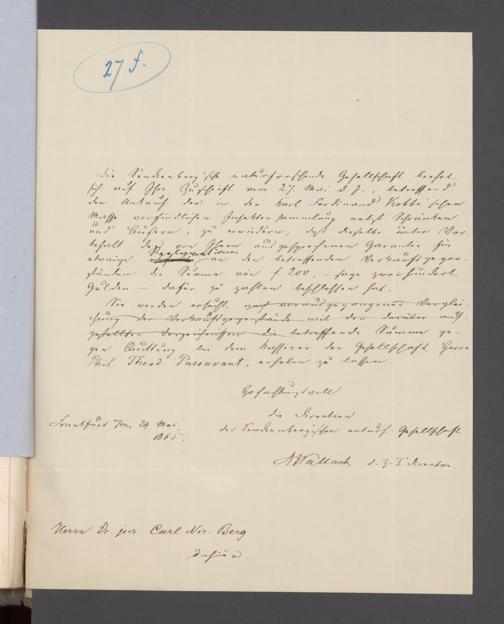 27 f.
Die Senckenbergische naturforschende Gesellschaft beehrt
sich auf Ihre Zuschrift vom 27 Mai d. J., betreffend
den Ankauf der in der Karl Ferdinand Kobbe'schen
Masse vorfindlichen Insektensammlung nebst Schränken
und Büchern, zu erwiedern, daß dieselbe unter Vor-
behalt der von Ihnen ausgesprochenen Garantie für
etwaige Reclamationen an den betreffenden Verkaufsgegen-
ständen die Summe von f 200, – sage zweihundert
Gulden – dafür zu zahlen beschlossen hat.
Sie werden ersucht, nach vorausgegangener Verglei-
chung der Verkaufsgegenstände mit den darüber auf-
gestellten Verzeichnissen die betreffende Summe ge-
gen Quittung bei dem Kassirer der Gesellschaft, Herrn
Phil. Theod. Passavant, erheben zu lassen.
Hochachtungsvoll
die Direction
der Senckenbergischen naturf. Gesellschaft
Frankfurt a/m. 29. Mai
1855.
A Wallach d. Z. I Director.
Herrn Dr. jur. Carl Nic. Berg
dahier.